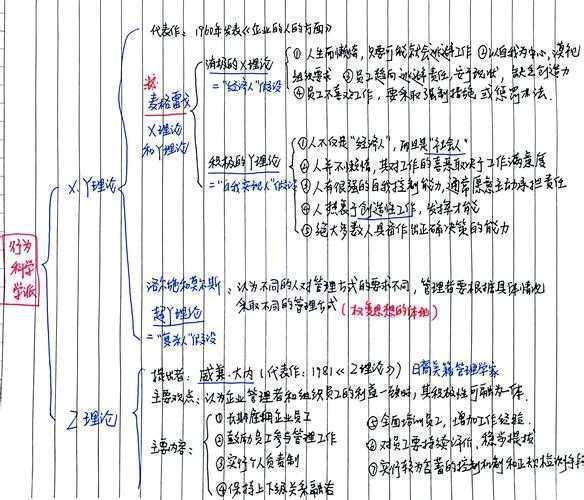 代表作：1960年发表《企业的人的方面》
麦格雷戈
X理论
和Y理论
消极的X理论
="经济人"假设
① 人生而懒惰，只要可能就会逃避工作 ②以自我为中心，漠视
组织要求 ③ 员工趋向逃避责任，安于现状，缺乏创造力
④ 员工不喜欢工作，要采取强制措施或惩罚办法.
积极的Y理论
="自我实现人"假设
①人不仅是"经济人"，而且是"社会人"
②人并不懒惰，其对工作的喜恶取决于工作满意度
③人有很强的自我控制能力，通常愿意主动承担责任
④人热衷于创造性工作，发挥才能
⑤绝大多数人具备作出正确决策的能力
X.Y理论
行为
科学
学派
洛尔施和莫尔斯：认为不同的人对管理方式的要求不同，管理者要根据具体情况
采取不同的管理方式（权变思想的体现）
超Y理论
="复杂人"假设
Z理论
提出者：威廉·大内（代表作：1981《Z理论》） 日裔美籍管理学家
主要观点：认为企业管理者和组织员工的利益一致时，其积极性可融为一体.
主要内容：
①长期雇佣企业员工
②鼓励员工参与管理工作
③实行个人负责制
④保持上下级关系融洽
⑤全面培训员工，增加工作经验.
⑥对员工要持续评价，稳步提拔
⑦实行较为含蓄的控制机制和正规检测手段